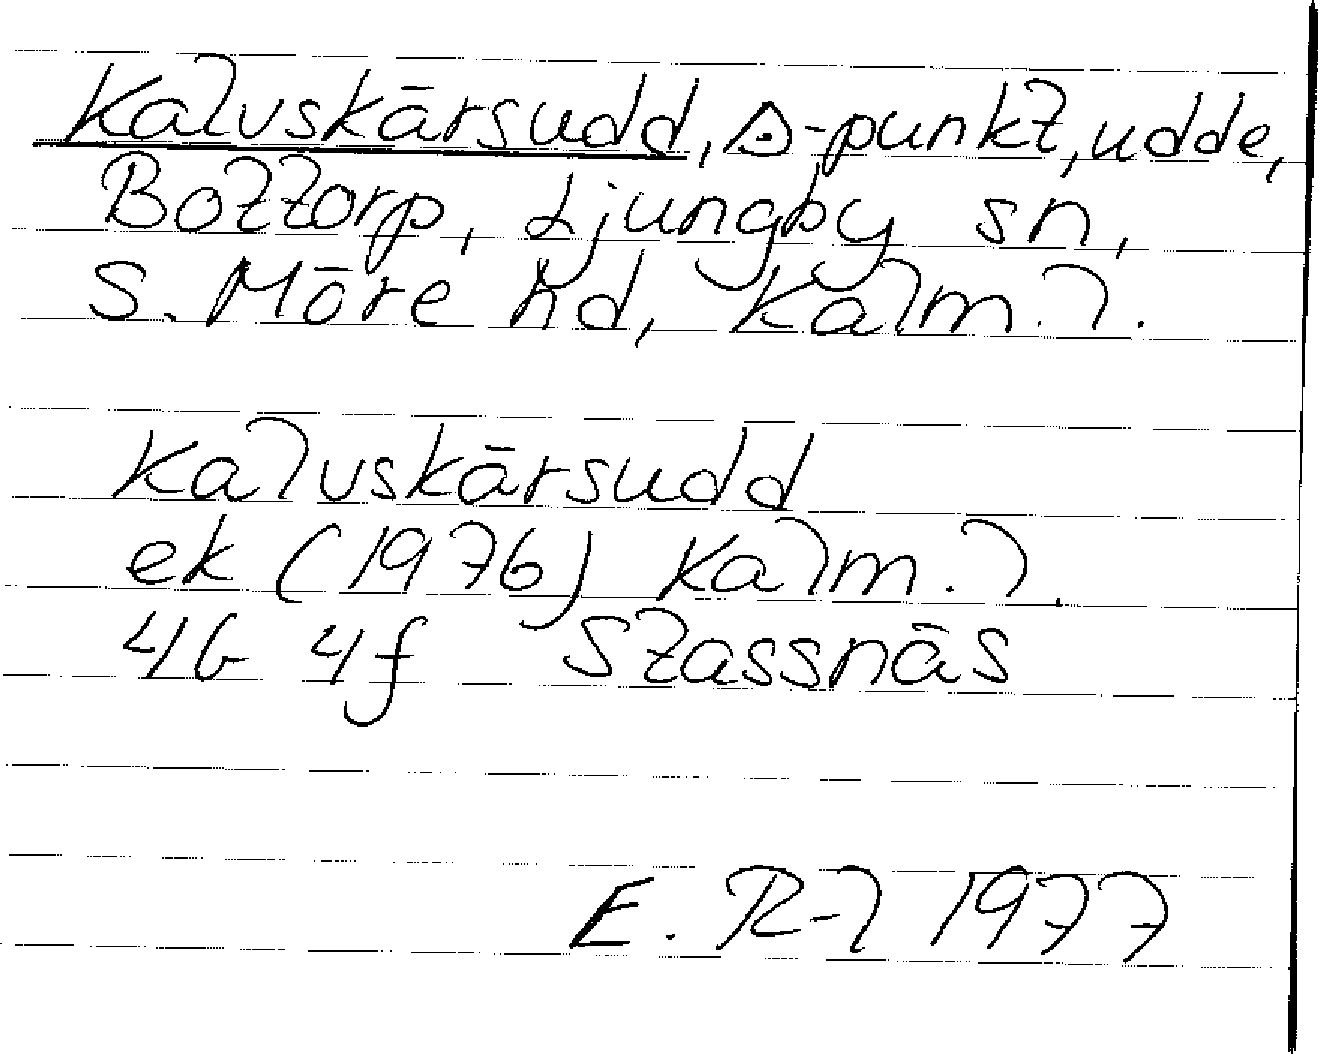 Kalvskärsudd, △-punkt, udde,
Bottorp, Ljungby sn,
S. Möre hd, Kalm. l.
Kalvskärsudd
ek (1976) Kalm. l.
4G 4f Stassnäs
E. R-l 1977